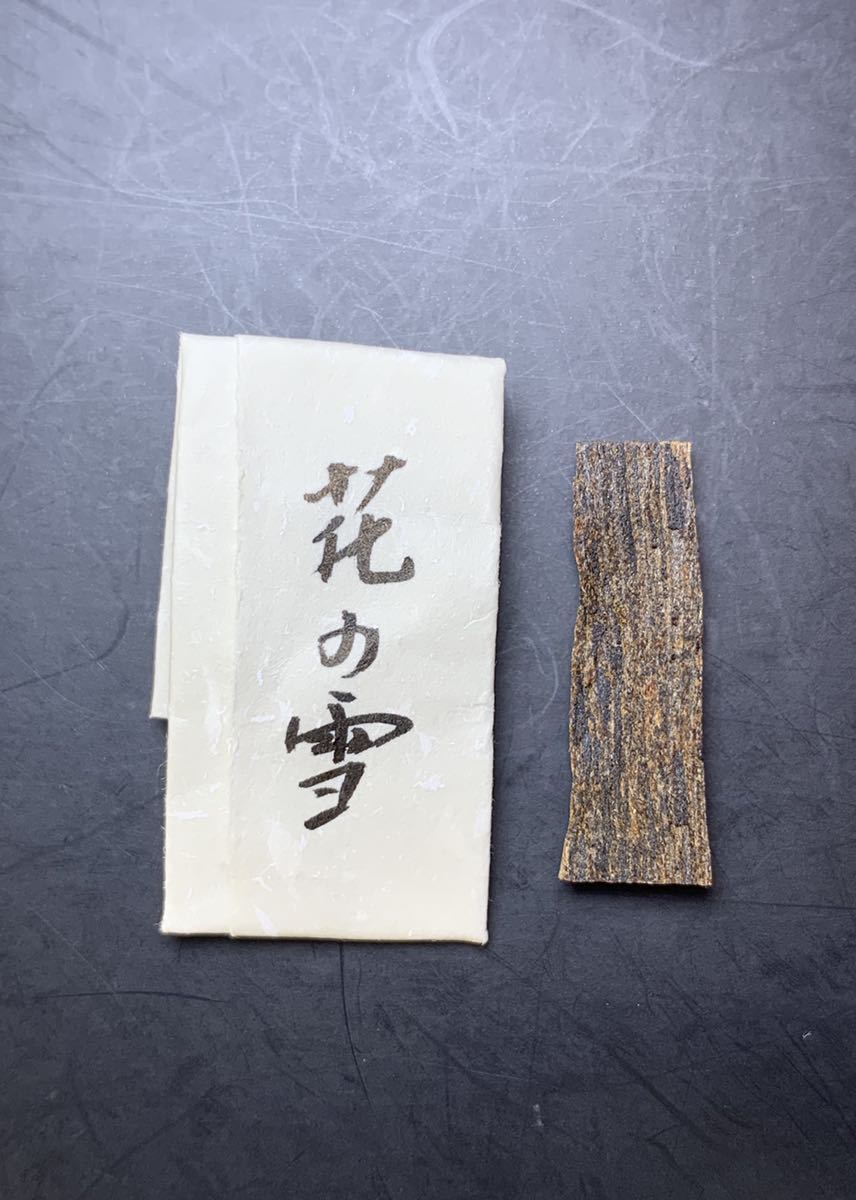 花の雪